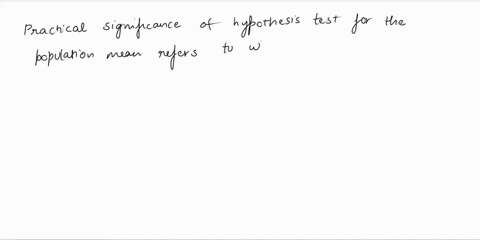 Practical significance of hypothesis test for the
population mean refers to w